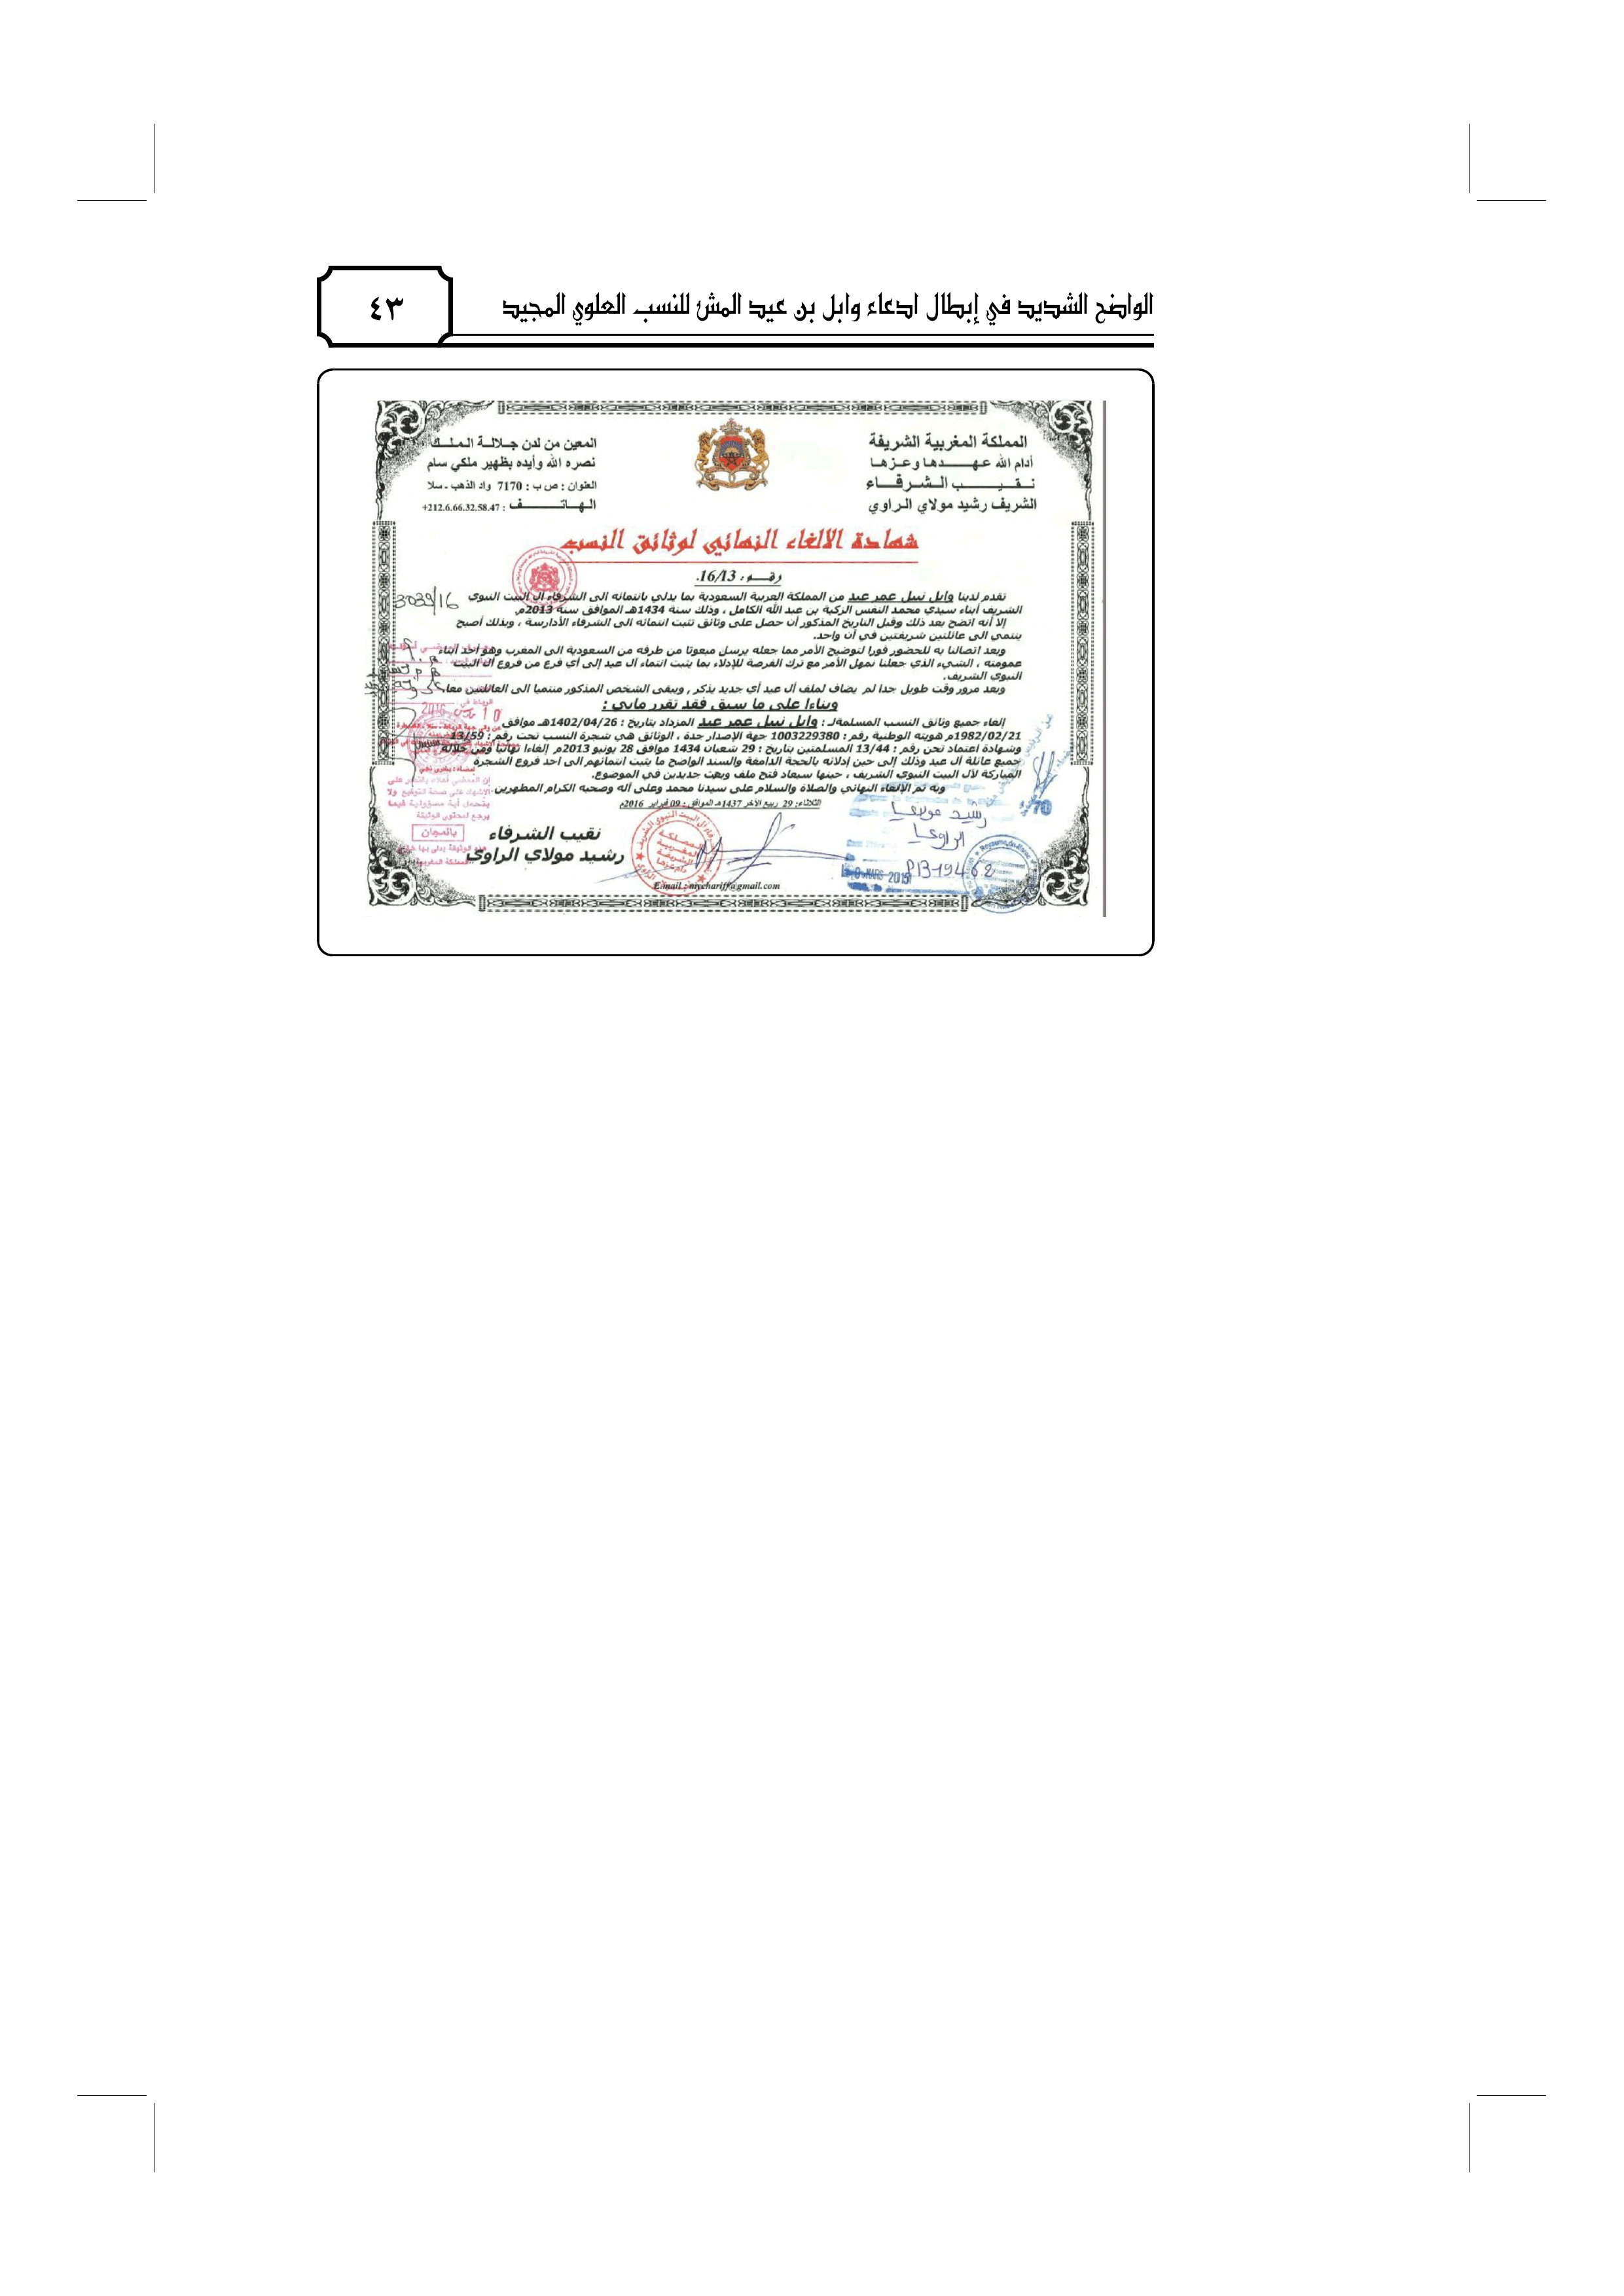 الواضح الشديد في إبطال ادعاء وابل بن عيد المش للنسب العلوي المجيد
٤٣
المملكة المغربية الشريفة
أدام الله عهدها وعزها
نقيب الشرفاء
الشريف رشيد مولاي الراوي
المعين من لدن جلالة الملك
نصره الله وأيده بظهير ملكي سام
العنوان : ص ب : 7170 واد الذهب - سلا
الهاتف : 212.6.66.32.58.47+
شهادة الالغاء النهائي لوثائق النسب
رقم : 16/13.
3039/16
تقدم لدينا وابل نبيل عمر عيد من المملكة العربية السعودية بما يدلي بانتمائه الى الشرفاء آل البيت النبوي
الشريف أبناء سيدي محمد النفس الزكية بن عبد الله الكامل ، وذلك سنة 1434هـ الموافق سنة 2013م.
إلا أنه اتضح بعد ذلك وقبل التاريخ المذكور أن حصل على وثائق تثبت انتمائه الى الشرفاء الأدارسة ، وبذلك أصبح
ينتمي الى عائلتين شريفتين في آن واحد.
وبعد اتصالنا به للحضور فورا لتوضيح الأمر مما جعله يرسل مبعوثا من طرفه من السعودية الى المغرب وهو احد أبناء
عمومته ، الشيء الذي جعلنا نمهل الأمر مع ترك الفرصة للإدلاء بما يثبت انتماء آل عيد إلى أي فرع من فروع آل البيت
النبوي الشريف.
وبعد مرور وقت طويل جدا لم يضاف لملف آل عيد أي جديد يذكر , ويبقى الشخص المذكور منتميا الى العائلتين معا.
وبناءا على ما سبق فقد تقرر مايي :
إلغاء جميع وثائق النسب المسلمة لـ : وابل نبيل عمر عيد المزداد بتاريخ : 1402/04/26هـ موافق
1982/02/21م هويته الوطنية رقم : 1003229380 جهة الإصدار جدة ، الوثائق هي شجرة النسب تحت رقم : 13/59
وشهادة اعتماد تحن رقم : 13/44 المسلمتين بتاريخ : 29 شعبان 1434 موافق 28 يونيو 2013م إلغاءا نهائيا ومن خلاله
جميع عائلة آل عيد وذلك إلى حين إدلائه بالحجة الدامغة والسند الواضح ما يثبت انتمائهم الى احد فروع الشجرة
المباركة لآل البيت النبوي الشريف ، حينها سيعاد فتح ملف وبحث جديدين في الموضوع.
وبه تم الإلغاء النهائي والصلاة والسلام على سيدنا محمد وعلى آله وصحبه الكرام المطهرين.
الثلاثاء: 29 ربيع الآخر 1437هـ الموافق : 09 فبراير 2016م
نقيب الشرفاء
رشيد مولاي الراوي
رشيد مولاي
الراوي
بالمجان